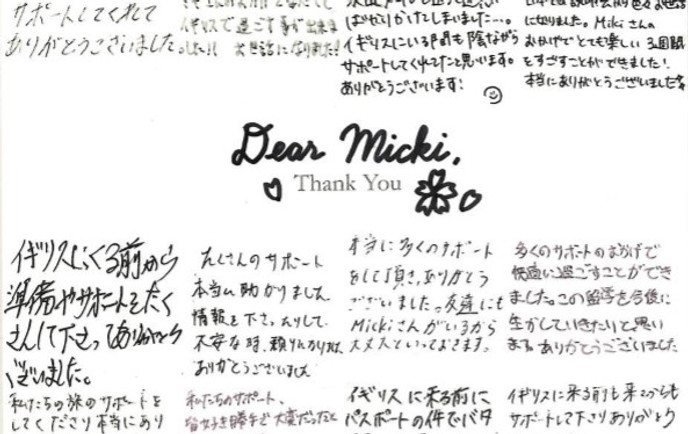 サポートしてくれて
ありがとうございました
イギリスで過ごす事が出来ま
した!! 大変お世話になりました!
ばかりかけてしまいました…。
イギリスにいる間も陰ながら
サポートしてくれてたと思います。
ありがとうございます!
になりました。Mikiさんの
おかげでとても楽しい3週間
をすごすことができました!
本当にありがとうございました
Dear Micki,
Thank You
イギリスにくる前から
準備やサポートをたく
さんして下さってありがとうご
ざいました。
たくさんのサポート
本当に助かりました。
情報を下さったりして、
不安な時、頼りになりました。
ありがとうございました
本当に多くのサポート
をして頂き、ありがとう
ございました。友達にも
Mickiさんがいるから
大丈夫といっておきます。
多くのサポートのおかげで
快適に過ごすことができ
ました。この留学を今後に
生かしていきたいと思い
ます。ありがとうございました
私たちの旅のサポートを
してくださり本当にあり
私たちのサポート、
大変だったと
イギリスに来る前に
パスポートの件でバタ
イギリスに来る前も来てからも
サポートして下さりありがとう